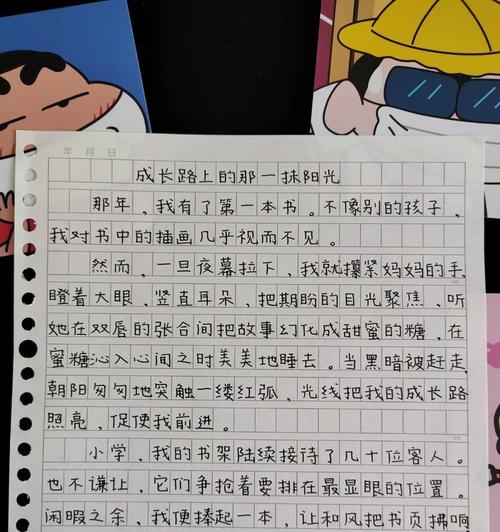 年 月 日
成长路上的那一抹阳光
那年，我有了第一本书。不像别的孩子，
我对书中的插画几乎视而不见。
然而，一旦夜幕拉下，我就攥紧妈妈的手，
瞪着大眼，竖直耳朵，把期盼的目光聚焦，听
她在双唇的张合间把故事幻化成甜蜜的糖，在
蜜糖沁入心间之时美美地睡去。当黑暗被赶走，
朝阳匆匆地突触一缕红弧，光线把我的成长路
照亮，促使我前进。
小学，我的书架陆续接待了几十位客人。
也不谦让，它们争抢着要排在最显眼的位置。
闲暇之余，我便捧起一本，让和风把书页拂响